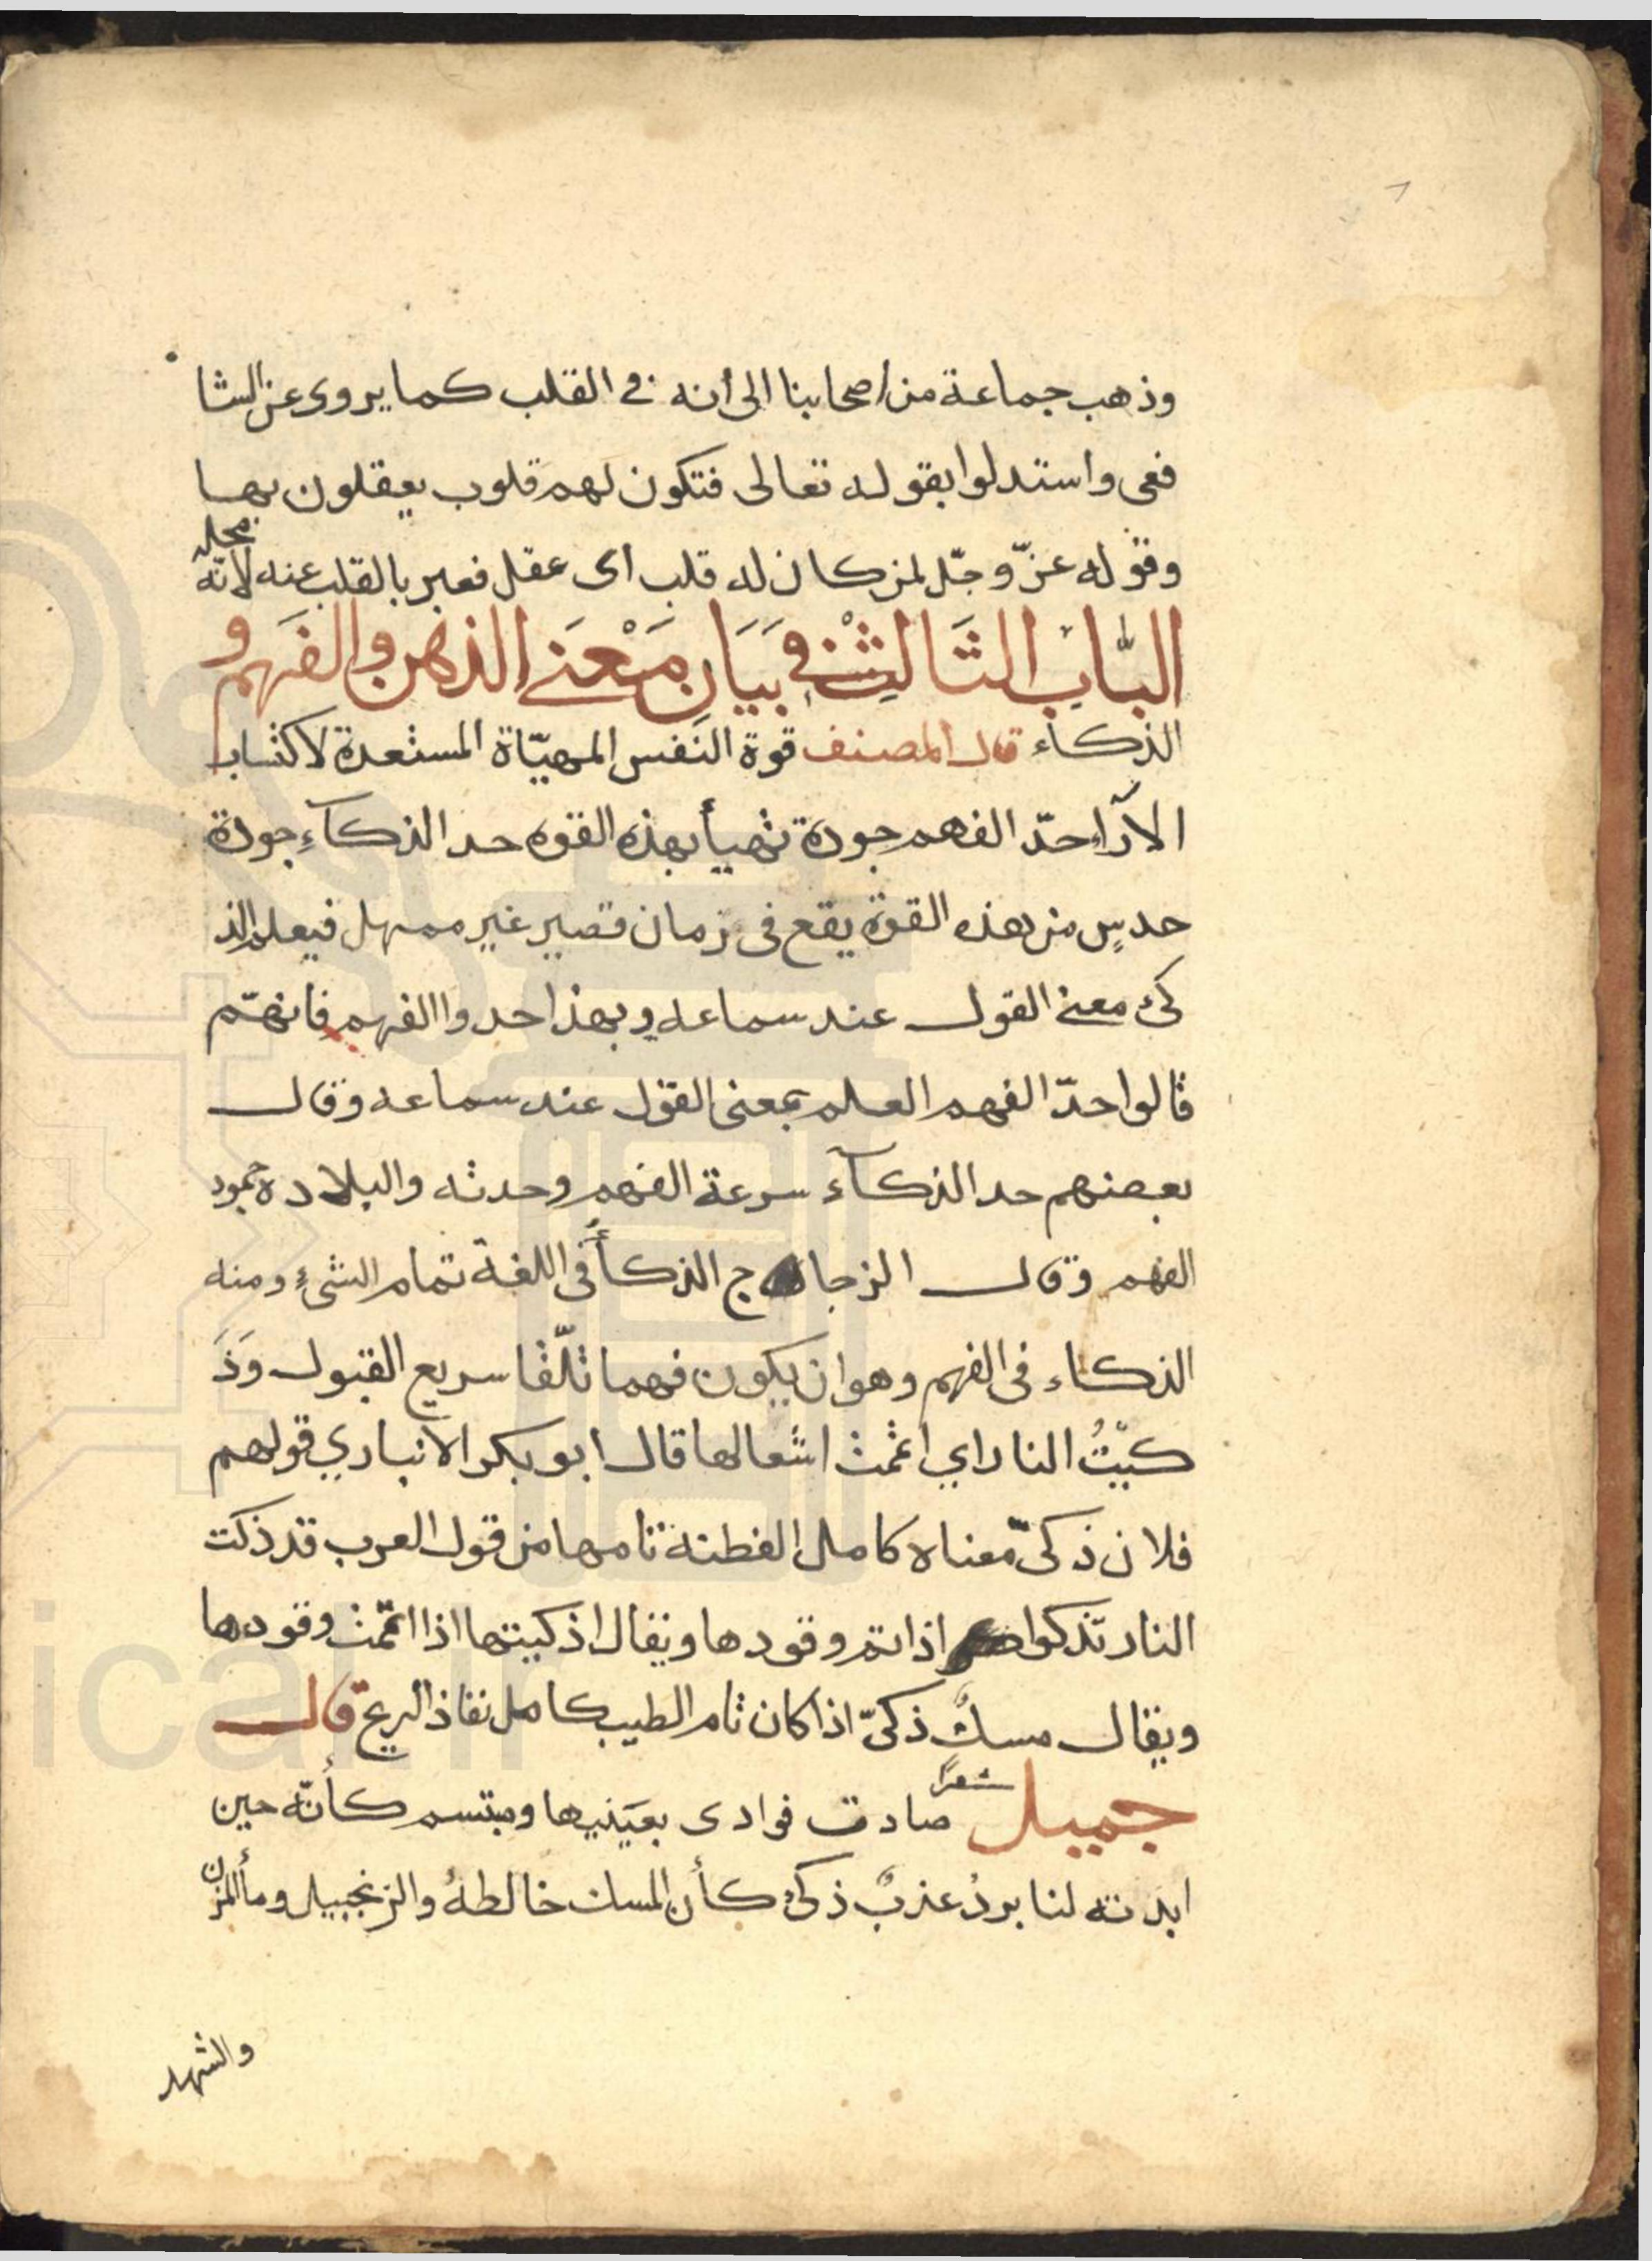 وذهب جماعة من اصحابنا الى أنه في القلب كما يروى عن الشا
فعى واستدلوا بقوله تعالى فتكون لهم قلوب يعقلون بها
وقوله عزّ وجّل لمن كان له قلب اى عقل فعبر بالقلب عنه لانّه محله
الباب الثالث في بيان معنى الذهن والفهم و
الذكاء قال المصنف قوة النفس المهيّاة المستعدة لاكتساب
الآراء حدّ الفهم جودة تهيأ بهذه القوه حد الذكآء جودة
حدسٍ من هذه القوة يقع فى زمان قصير غير ممهل فيعلم الذ
كى معنى القول عند سماعه وبهذا حدوا الفهم فانهّم
قالوا حدّ الفهم العلم بمعنى القول عند سماعه وقال
بعضهم حد الذكآء سرعة الفهم وحدته والبلاده جمود
الفهم وقال الزجاج الذكأ فى اللغة تمام الشىء ومنه
الذكاء فى الفهم وهو ان يكون فهما تلّقا سريع القبول وَذَ
كيّتُ النار اي اتممت اشعالها قال ابو بكر الانباري قولهم
فلان ذكىّ معناه كامل الفطنة تامها من قول العرب قد ذكت
النار تذكوا اذا تم وقودها ويقال اذكيتها اذا اتممت وقودها
ويقال مسكٌ ذكىّ اذا كان تام الطيب كامل نفاذ الريح قال
جميل شعرًا صادت فوادى بعَينيها ومبتسم كأنّه حين
ابدته لنا بردُ عذبٌ ذكى كأن المسك خالطهُ والزنجبيل ومأ المزن
والشهد